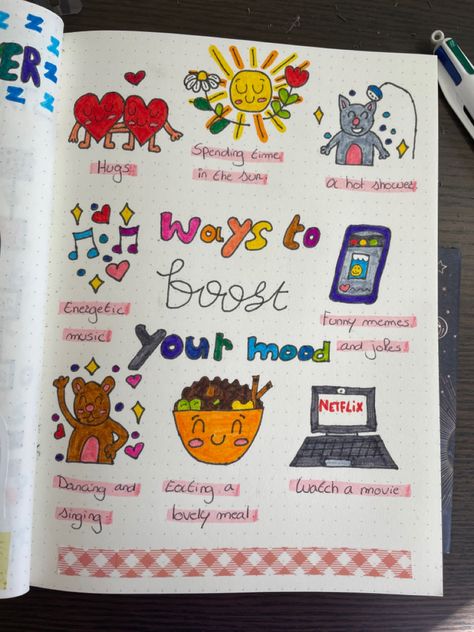 ER
Hugs
Spending time
in the sun.
a hot shower
Ways to
boost
your mood
Energetic
music
Funny memes
and jokes
NETFLIX
Dancing and
singing.
Eating a
lovely meal.
Watch a movie